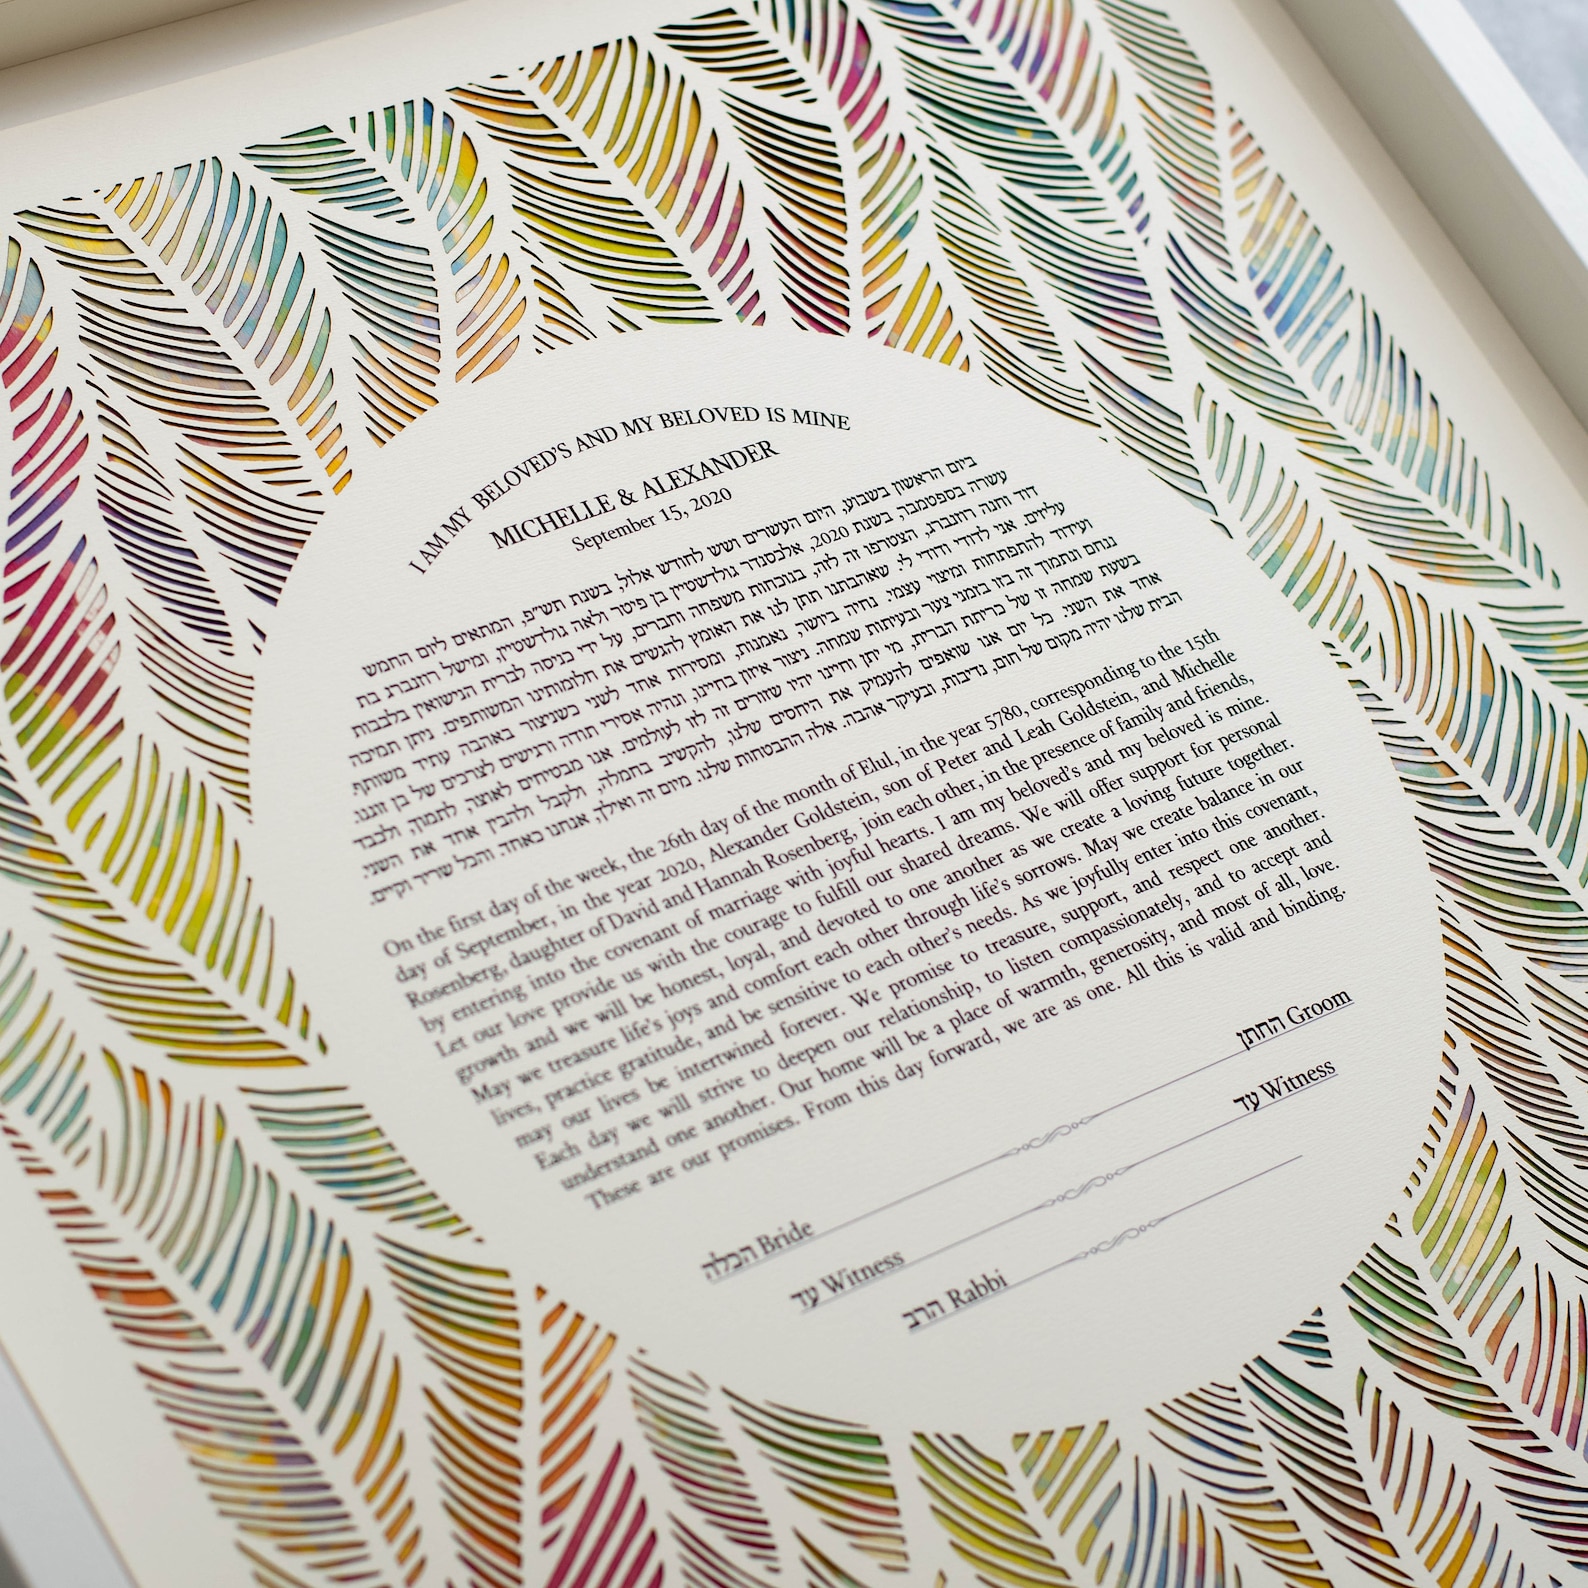 I AM MY BELOVED'S AND MY BELOVED IS MINE
MICHELLE & ALEXANDER
September 15, 2020
ביום הראשון בשבוע, היום העשרים ושש לחודש אלול, בשנת תש״פ, המתאים ליום החמש
עשרה בספטמבר, בשנת 2020, אלכסנדר גולדשטיין בן פיטר ולאה גולדשטיין, ומישל רוזנברג בת
דוד וחנה רוזנברג, הצטרפו זה לזה, בנוכחות משפחה וחברים, על ידי כניסה לברית הנישואין בלבבות
עליזים. אני לדודי ודודי לי. שאהבתנו תתן לנו את האומץ להגשים את חלומותינו המשותפים. ניתן תמיכה
ועידוד להתפתחות ומיצוי עצמי. נחיה ביושר, נאמנות, ומסירות אחד לשני כשניצור באהבה עתיד משותף.
ננחם ונתמוך זה בזו בזמני צער ובעיתות שמחה. ניצור איזון בחיינו, ונהיה אסירי תודה ורגישים לצרכים של בן זוגנו.
בשעת שמחה זו של כריתת הברית, מי יתן וחיינו יהיו שזורים זה לזו לעולמים. אנו מבטיחים לאוצר, לתמוך, ולכבד
אחד את השני. כל יום אנו שואפים להעמיק את היחסים שלנו, להקשיב בחמלה, ולקבל ולהבין אחד את השני.
הבית שלנו יהיה מקום של חום, נדיבות, ובעיקר אהבה. אלה ההבטחות שלנו. מיום זה ואילך, אנחנו כאחד. והכל שריר וקיים.
On the first day of the week, the 26th day of the month of Elul, in the year 5780, corresponding to the 15th
day of September, in the year 2020, Alexander Goldstein, son of Peter and Leah Goldstein, and Michelle
Rosenberg, daughter of David and Hannah Rosenberg, join each other, in the presence of family and friends,
by entering into the covenant of marriage with joyful hearts. I am my beloved's and my beloved is mine.
Let our love provide us with the courage to fulfill our shared dreams. We will offer support for personal
growth and we will be honest, loyal, and devoted to one another as we create a loving future together.
May we treasure life's joys and comfort each other through life's sorrows. May we create balance in our
lives, practice gratitude, and be sensitive to each other's needs. As we joyfully enter into this covenant,
may our lives be intertwined forever. We promise to treasure, support, and respect one another.
Each day we will strive to deepen our relationship, to listen compassionately, and to accept and
understand one another. Our home will be a place of warmth, generosity, and most of all, love.
These are our promises. From this day forward, we are as one. All this is valid and binding.
הכלה Bride החתן Groom
עד Witness עד Witness
הרב Rabbi